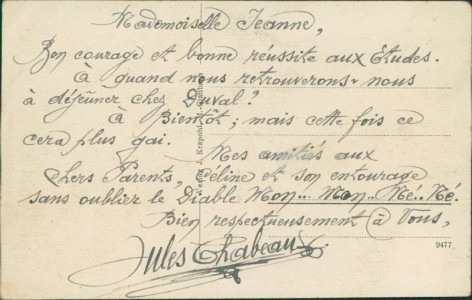 Mademoiselle Jeanne,
Bon courage et bonne réussite aux Études.
à quand nous retrouverons-nous
à déjeûner chez Duval?
à Bientôt; mais cette fois ce
cera plus gai.
Mes amitiés aux
chers Parents, Céline et son entourage
sans oublier le Diable Mon... Mon.. Né.. Né.
Bien respectueusement à Vous,
Jules Chabeaux.
9477